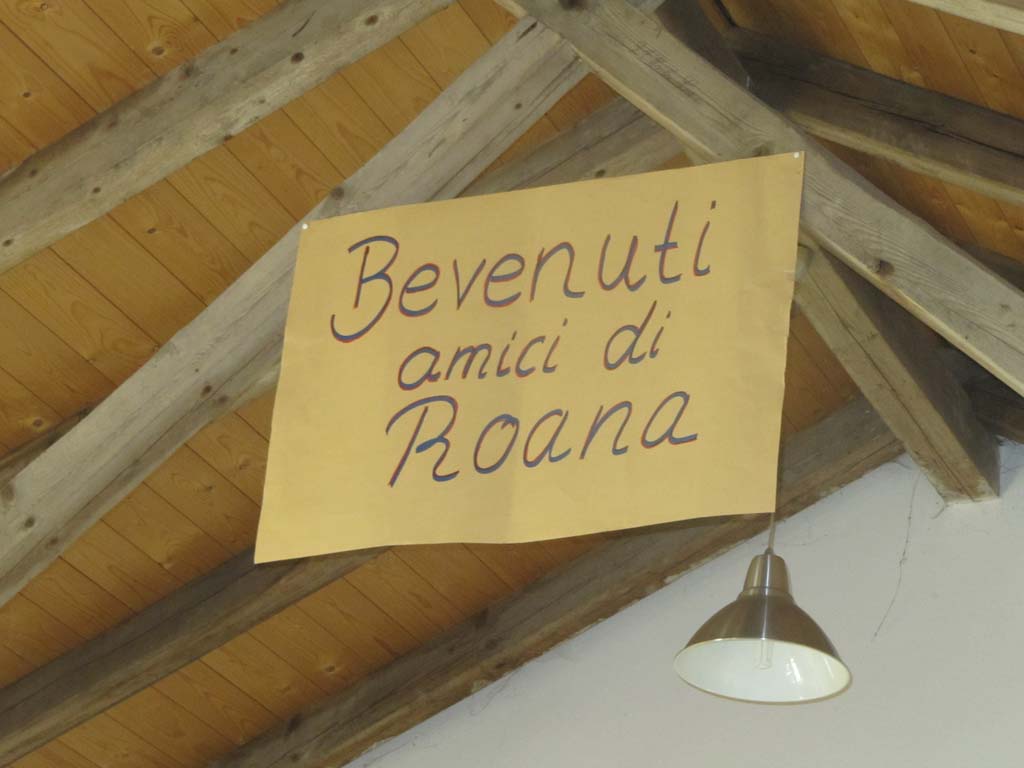 Bevenuti
amici di
Roana